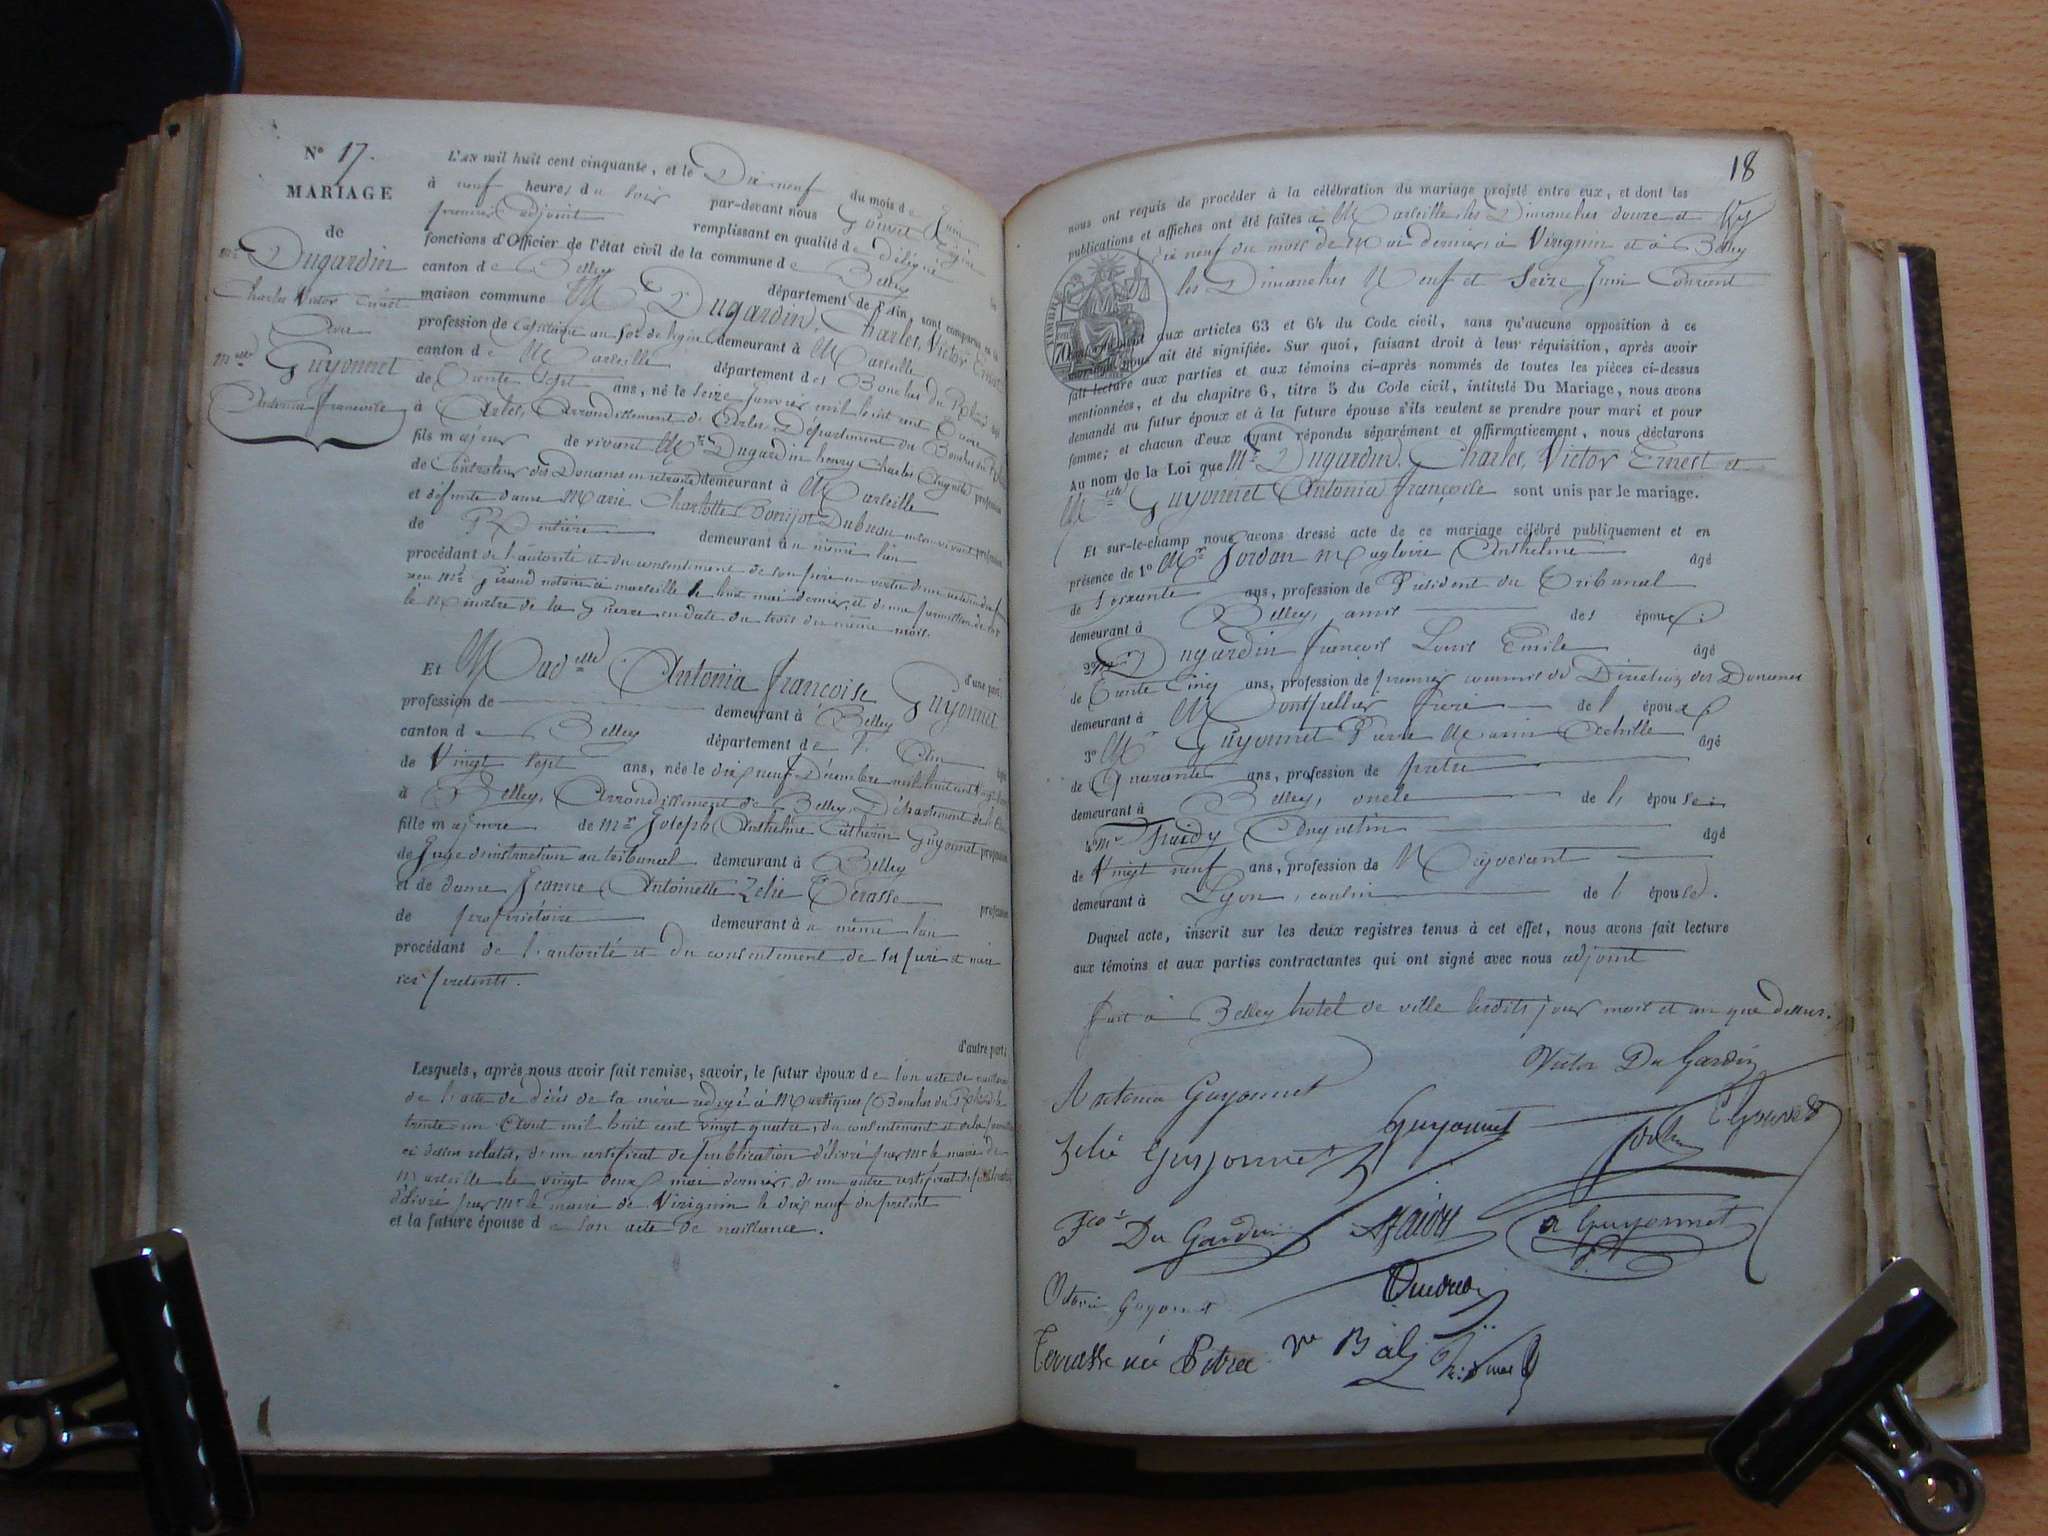 N° 17.
MARIAGE
de
Mr Dugardin
Charles Victor Ernest
Avec
Melle Guyonnet
Antonia françoise
L'AN mil huit cent cinquante, et le Dix neuf du mois de Juin
à neuf heures du soir par-devant nous Gouvet Eugène
premier adjoint remplissant en qualité de délégué les
fonctions d'Officier de l'état civil de la commune de Belley
canton de Belley département de l'Ain, sont comparus en la
maison commune Mr Dugardin, Charles, Victor Ernest
profession de Capitaine au de ligne demeurant à Marseille
canton de Marseille département des Bouches du Rhône âgé
de Trente Sept ans, né le seize Janvier mil huit cent treize
à Arles, Arrondissement d'Arles, Département des Bouches du Rhône
fils majeur de vivant Mr Dugardin henry Charles Auguste profession
de Controleur des Douanes en retraite demeurant à Marseille
et défunte dame Marie Charlotte Dubuau en son vivant profession
de Rentière demeurant au même lieu
procédant de l'autorité et du consentement de son père en vertu d'une
Me Giraud notaire à marseille le huit mai dernier, et d'une permission de Mr
le Ministre de la Guerre en date du trois du même mois.
d'une part;
Et Madelle Antonia françoise Guyonnet
profession de demeurant à Belley
canton de Belley département de l'Ain âgée
de Vingt Sept ans, née le dix neuf Décembre mil huit cent vingt deux
à Belley, Arrondissement de Belley, Département de l'Ain
fille majeure de Mr Joseph Anthelme Catherin Guyonnet profession
de Juge d'instruction au tribunal demeurant à Belley
et de dame Jeanne Antoinette Zelie Térasse profession
de propriétaire demeurant au même lieu
procédant de l'autorité et du consentement de ses père et mère
ici présents.
d'autre part;
Lesquels, après nous avoir fait remise, savoir, le futur époux de son acte de naissance
de l'acte de décès de la mère rédigé à Martigues (Bouches du Rhône) le
trente un Août mil huit cent vingt quatre, du consentement et de la permission
ci dessus relatés, d'un certificat de publication délivré par Mr le maire de
Marseille le vingt deux mai dernier, d'un autre certificat de publication
délivré par Mr le maire de Virignin le dix neuf du présent
et la future épouse de son acte de naissance.
18
nous ont requis de procéder à la célébration du mariage projeté entre eux, et dont les
publications et affiches ont été faites à Marseille les Dimanches douze et
dix neuf du mois de Mai dernier, à Virignin et à Belley
les Dimanches Neuf et Seize Juin Courant
TIMBRE
70
conformément aux articles 63 et 64 du Code civil, sans qu'aucune opposition à ce
mariage nous ait été signifiée. Sur quoi, faisant droit à leur réquisition, après avoir
fait lecture aux parties et aux témoins ci-après nommés de toutes les pièces ci-dessus
mentionnées, et du chapitre 6, titre 5 du Code civil, intitulé Du Mariage, nous avons
demandé au futur époux et à la future épouse s'ils veulent se prendre pour mari et pour
femme; et chacun d'eux ayant répondu séparément et affirmativement, nous déclarons
Au nom de la Loi que Mr Dugardin, Charles, Victor Ernest et
Melle Guyonnet Antonia françoise sont unis par le mariage.
Et sur-le-champ nous avons dressé acte de ce mariage célébré publiquement et en
présence de 1° Mr Jordan Magloire Anthelme âgé
de soixante ans, profession de Président du Tribunal
demeurant à Belley, amis des époux;
2° Mr Dugardin françois Louis Emile âgé
de Trente Cinq ans, profession de premier commis de Direction des Douanes
demeurant à Montpellier frère de l'époux;
3° Mr Guyonnet Pierre Marin Achille âgé
de Quarante ans, profession de prêtre
demeurant à Belley, oncle de l'épouse;
4° Mr Fraidy Augustin âgé
de Vingt neuf ans, profession de Négociant
demeurant à Lyon, cousin de l'épouse.
Duquel acte, inscrit sur les deux registres tenus à cet effet, nous avons fait lecture
aux témoins et aux parties contractantes qui ont signé avec nous adjoint
fait à Belley hotel de ville lesdits jour mois et an que dessus.
Victor Du Gardin
Antonia Guyonnet
Guyonnet
E Gouvet
Zelie Guyonnet
Fcois Du Gardin
a Guyonnet
Guyonnet
Terrasse née